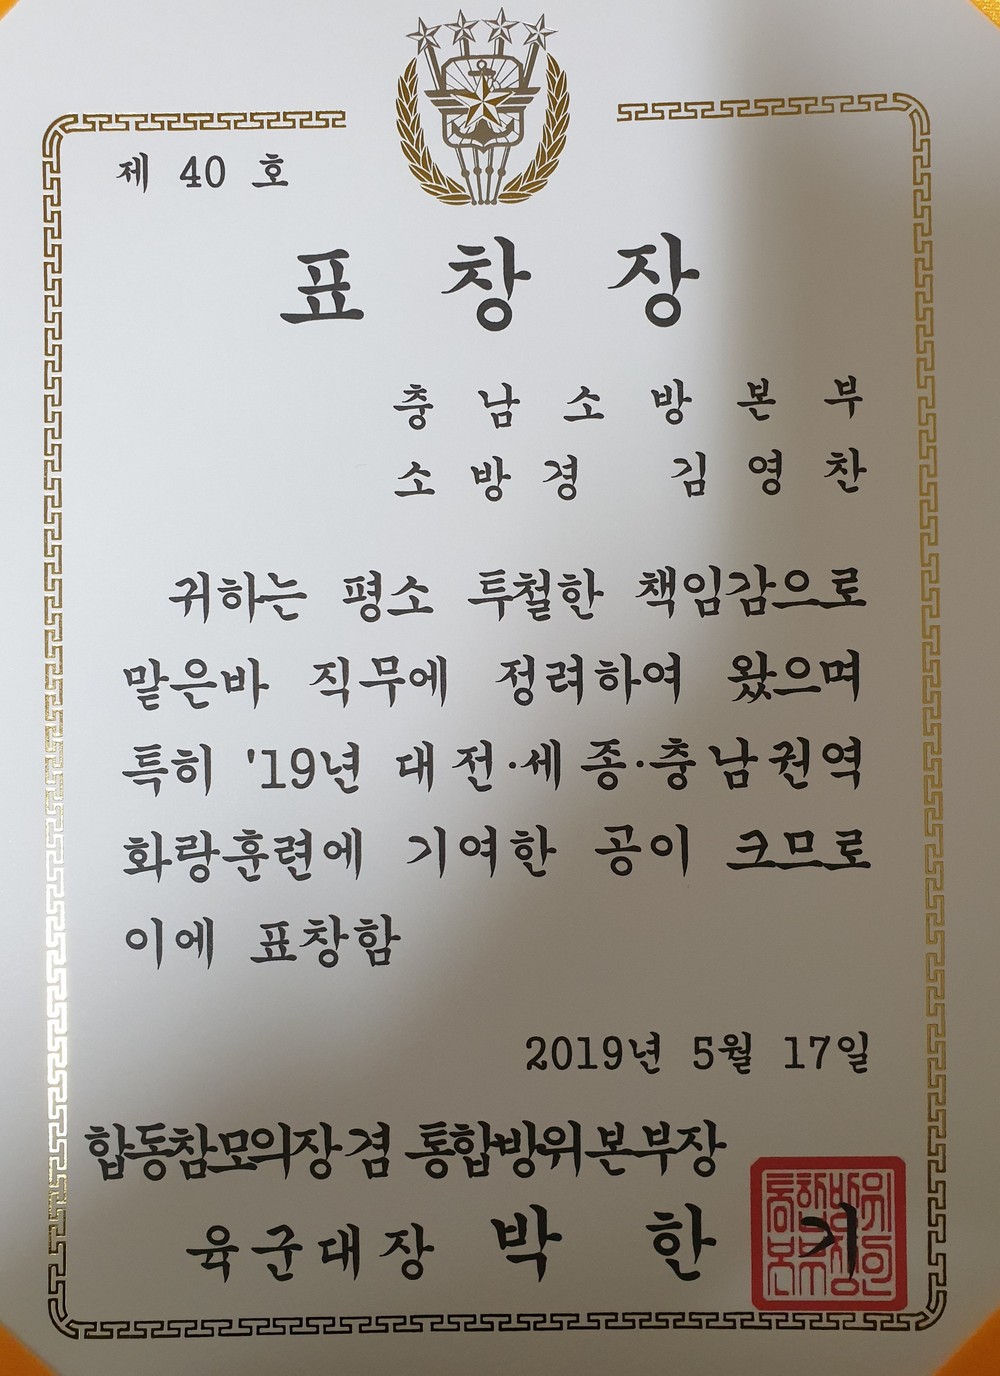 제 40 호
표 창 장
충 남 소 방 본 부
소 방 경 김 영 찬
귀하는 평소 투철한 책임감으로
맡은바 직무에 정려하여 왔으며
특히 '19년 대전·세종·충남권역
화랑훈련에 기여한 공이 크므로
이에 표창함
2019년 5월 17일
합동참모의장 겸 통합방위본부장
육군대장 박 한 기
통합방위
본부장인